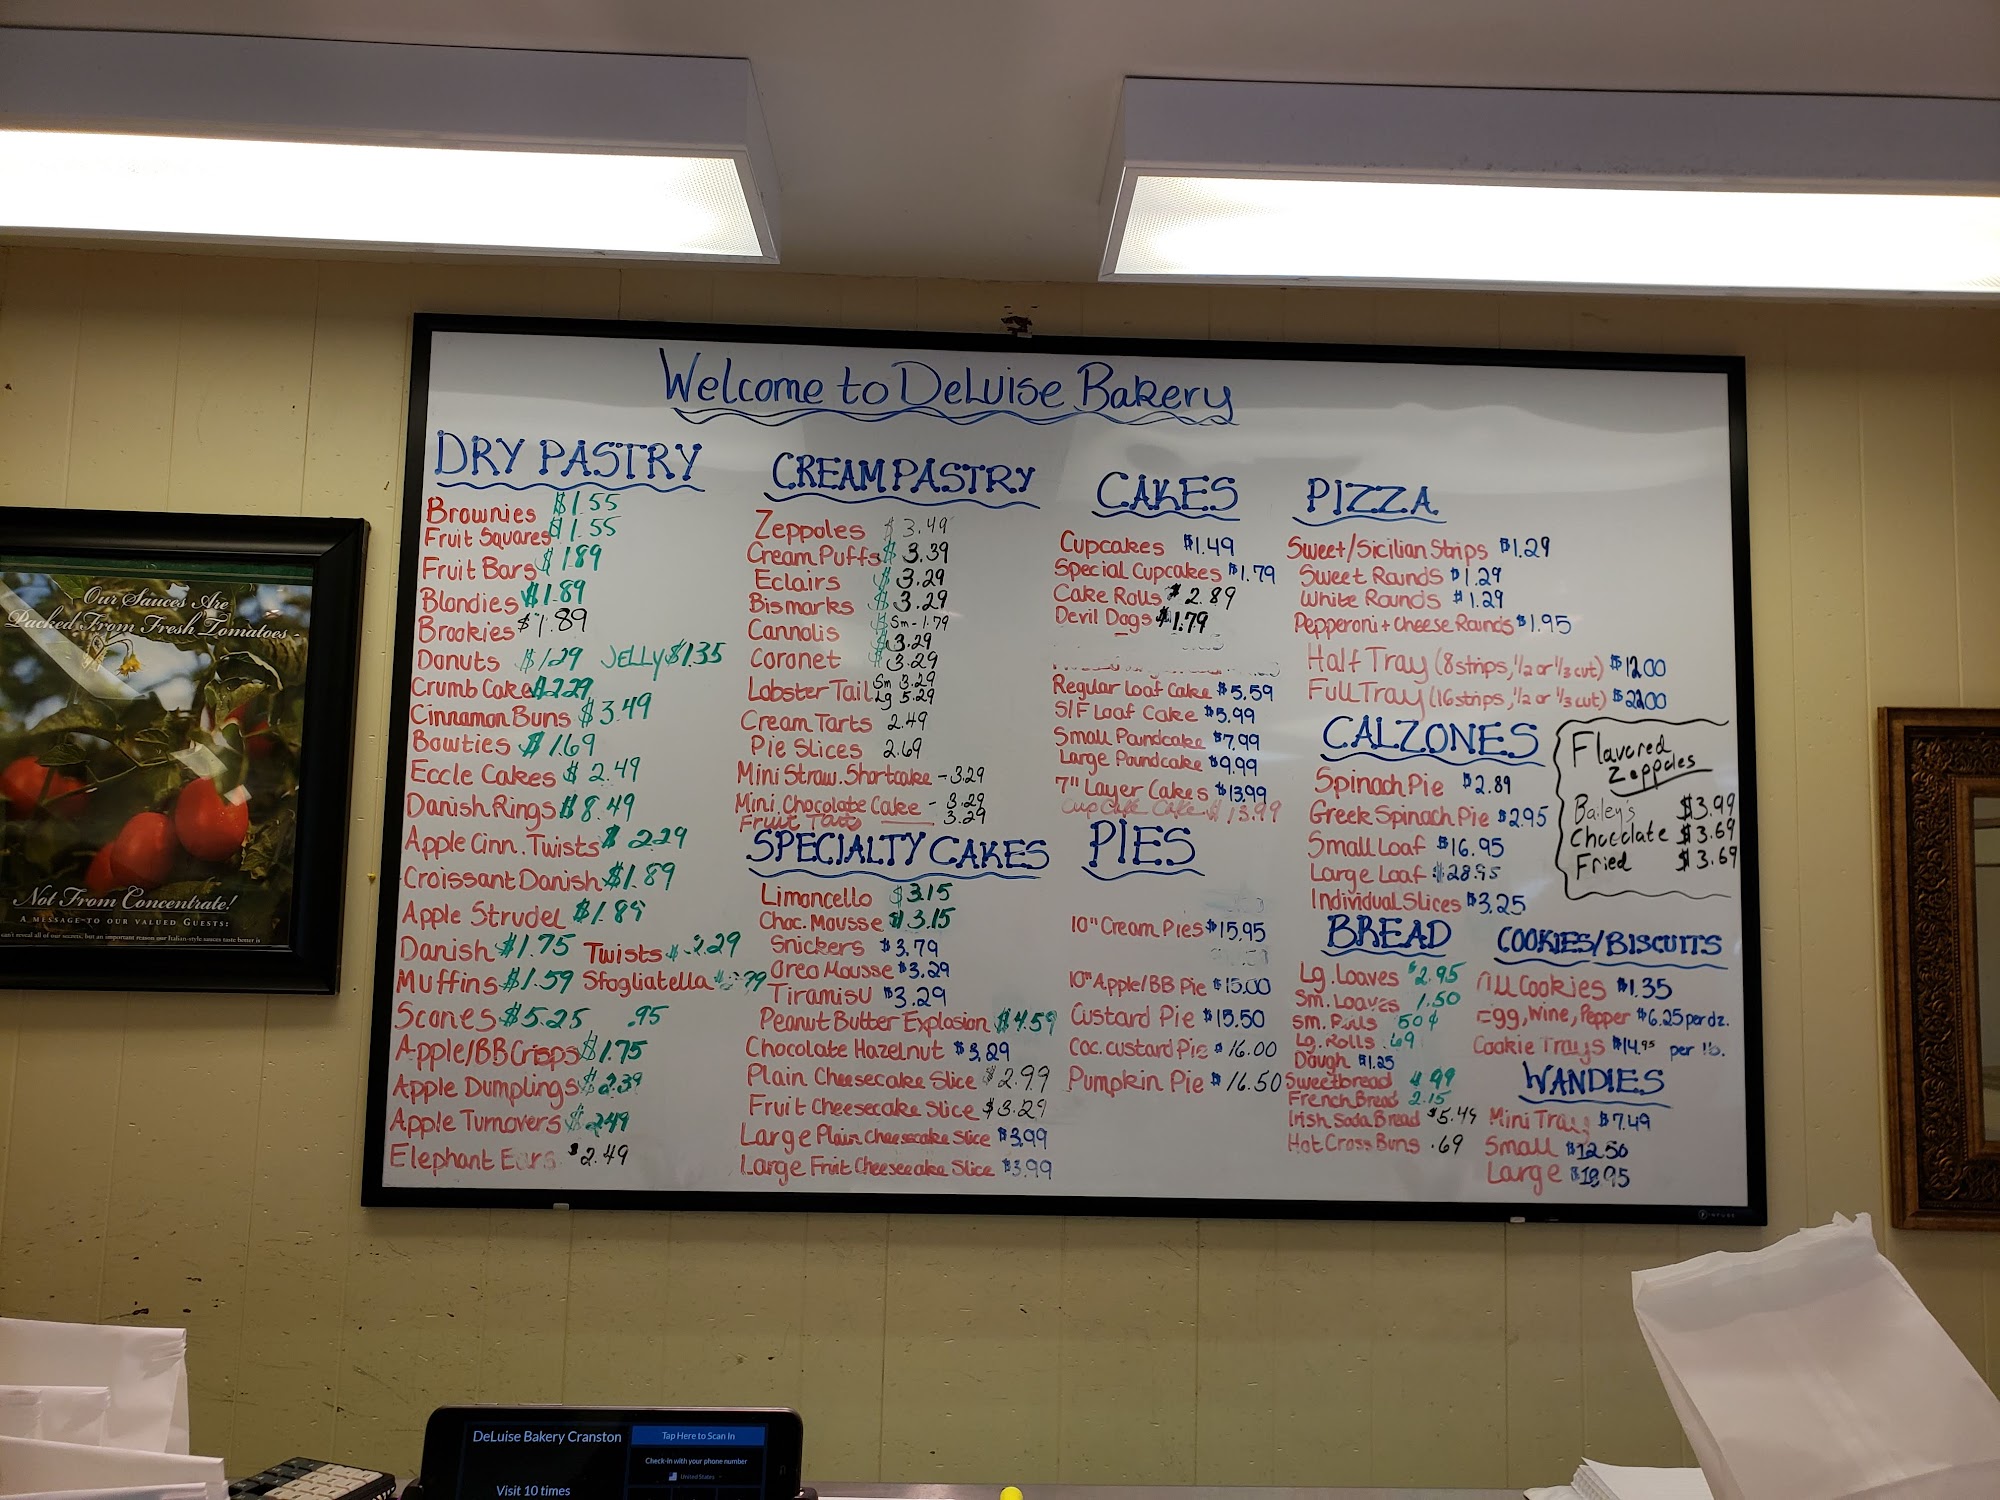 Welcome to DeLuise Bakery
DRY PASTRY
Brownies $1.55
Fruit Squares $1.55
Fruit Bars $1.89
Blondies $1.89
Brookies $1.89
Donuts $1.29 JELLY $1.35
Crumb Cake $2.29
Cinnamon Buns $3.49
Bowties $1.69
Eccle Cakes $2.49
Danish Rings $8.49
Apple Cinn. Twists $2.29
Croissant Danish $1.89
Apple Strudel $1.89
Danish $1.75 Twists $2.29
Muffins $1.59 Sfogliatella
Scones $5.25 .95
Apple/BB Crisps $1.75
Apple Dumplings $2.39
Apple Turnovers $2.49
Elephant Ears $2.49
CREAM PASTRY
Zeppoles $3.49
Cream Puffs $3.39
Eclairs $3.29
Bismarks $3.29
Cannolis $ Sm-1.79 $3.29
Coronet $3.29
Lobster Tail Sm 3.29 Lg 5.29
Cream Tarts 2.49
Pie Slices 2.69
Mini Straw. Shortcake - 3.29
Mini Chocolate Cake - 3.29
Fruit Tarts 3.29
SPECIALTY CAKES
Limoncello $3.15
Choc. Mousse $3.15
Snickers $3.79
Oreo Mousse $3.29
Tiramisu $3.29
Peanut Butter Explosion $4.59
Chocolate Hazelnut $3.29
Plain Cheesecake Slice $2.99
Fruit Cheesecake Slice $3.29
Large Plain Cheesecake Slice $3.99
Large Fruit Cheesecake Slice $3.99
CAKES
Cupcakes $1.49
Special Cupcakes $1.79
Cake Rolls $2.89
Devil Dogs $1.79
Regular Loaf Cake $5.59
S/F Loaf Cake $5.99
Small Poundcake $7.99
Large Poundcake $9.99
7" Layer Cakes $13.99
Cup Cake Cake $13.99
PIES
10" Cream Pies $15.95
10" Apple/BB Pie $15.00
Custard Pie $15.50
Coc. Custard Pie $16.00
Pumpkin Pie $16.50
PIZZA
Sweet/Sicilian Strips $1.29
Sweet Rounds $1.29
White Rounds $1.29
Pepperoni + Cheese Rounds $1.95
Half Tray (8 strips, 1/2 or 1/3 cut) $12.00
Full Tray (16 strips, 1/2 or 1/3 cut) $22.00
CALZONES
Spinach Pie $2.89
Greek Spinach Pie $2.95
Small Loaf $16.95
Large Loaf $28.95
Individual Slices $3.25
Flavored
Zeppoles
Bailey's $3.99
Chocolate $3.69
Fried $3.69
BREAD
Lg. Loaves $2.95
Sm. Loaves 1.50
Sm. Rolls 50¢
Lg. Rolls .69
Dough $1.25
Sweetbread 4.99
French Bread 2.15
Irish Soda Bread $5.49
Hot Cross Buns .69
COOKIES/BISCUITS
All Cookies $1.35
Egg, Wine, Pepper $6.25 per dz.
Cookie Trays $14.95 per lb.
WANDIES
Mini Tray $7.49
Small $12.50
Large
Our Sauces Are
Packed From Fresh Tomatoes -
Not From Concentrate!
A MESSAGE TO OUR VALUED GUESTS:
can't reveal all of our secrets, but an important reason our Italian-style sauces taste better is
DeLuise Bakery Cranston
Tap Here to Scan In
Check-in with your phone number
United States
Visit 10 times